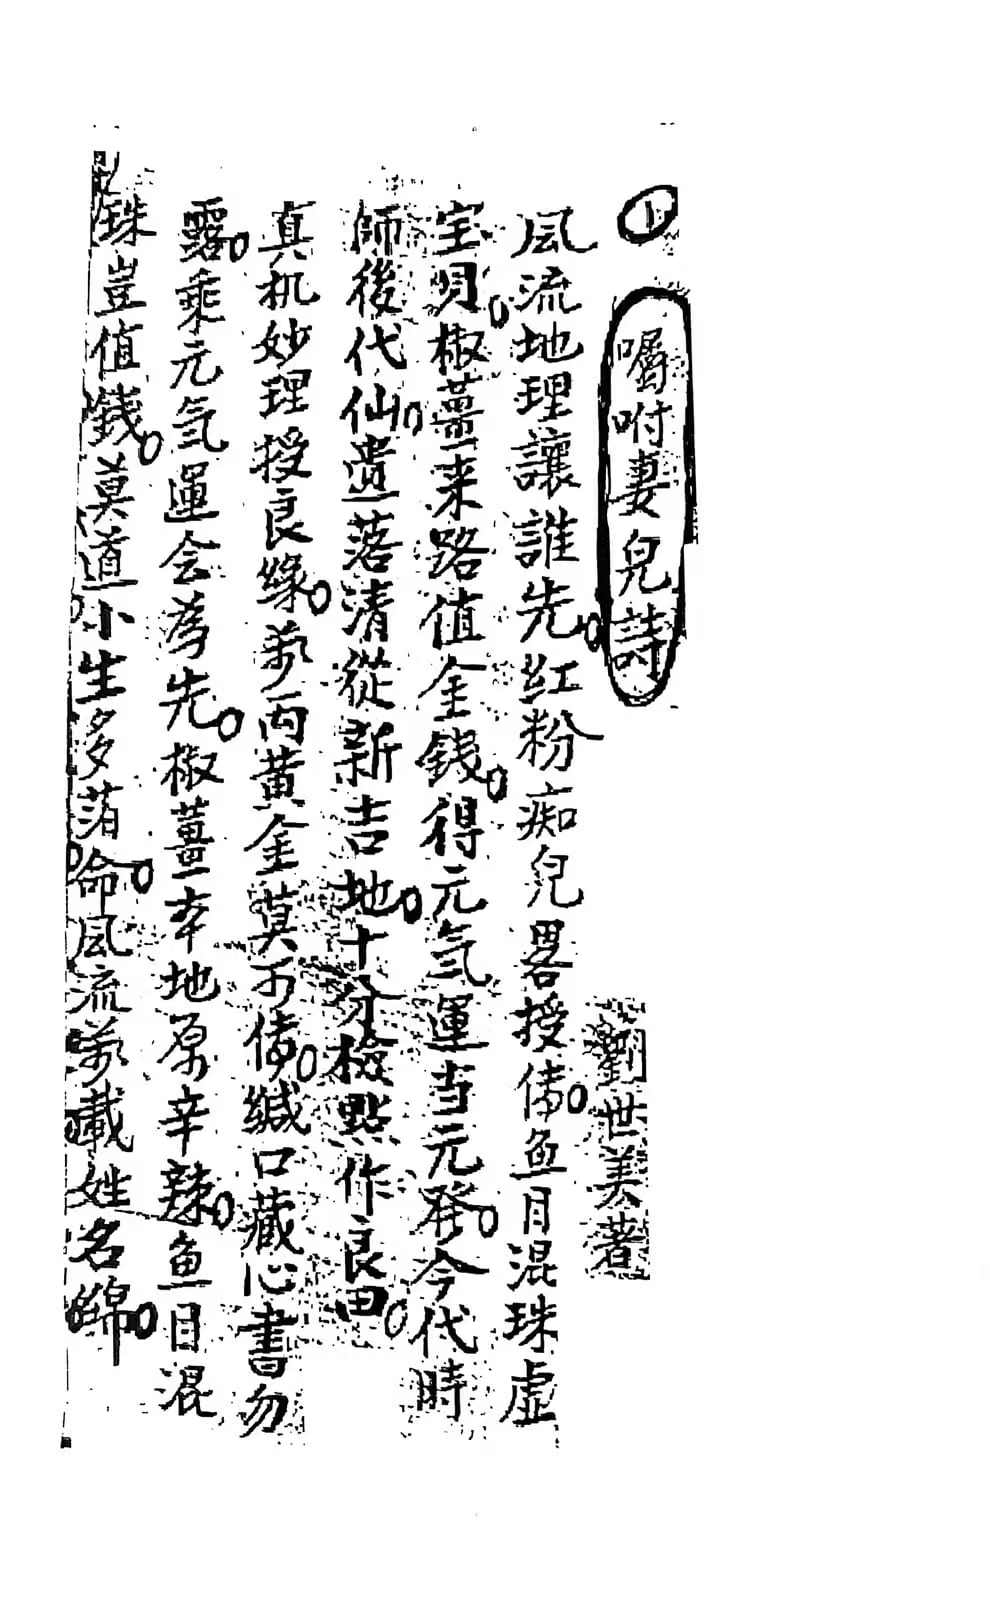 上
囑咐妻兒詩
劉世美著
風流地理讓誰先。红粉痴兒畧授俻。鱼目混珠虚
宝明。椒薑来路值金錢。得元氣運当元發。今代時
師後代仙。遗落清從新吉地。十分檢點作良田。
真机妙理授良缘。萬両黄金莫可俻。缄口藏心書勿
露。乘元氣運会為先。椒薑幸地原辛辣。鱼目混
珠豈值錢。莫道小生多薄命。風流萬載姓名綿。